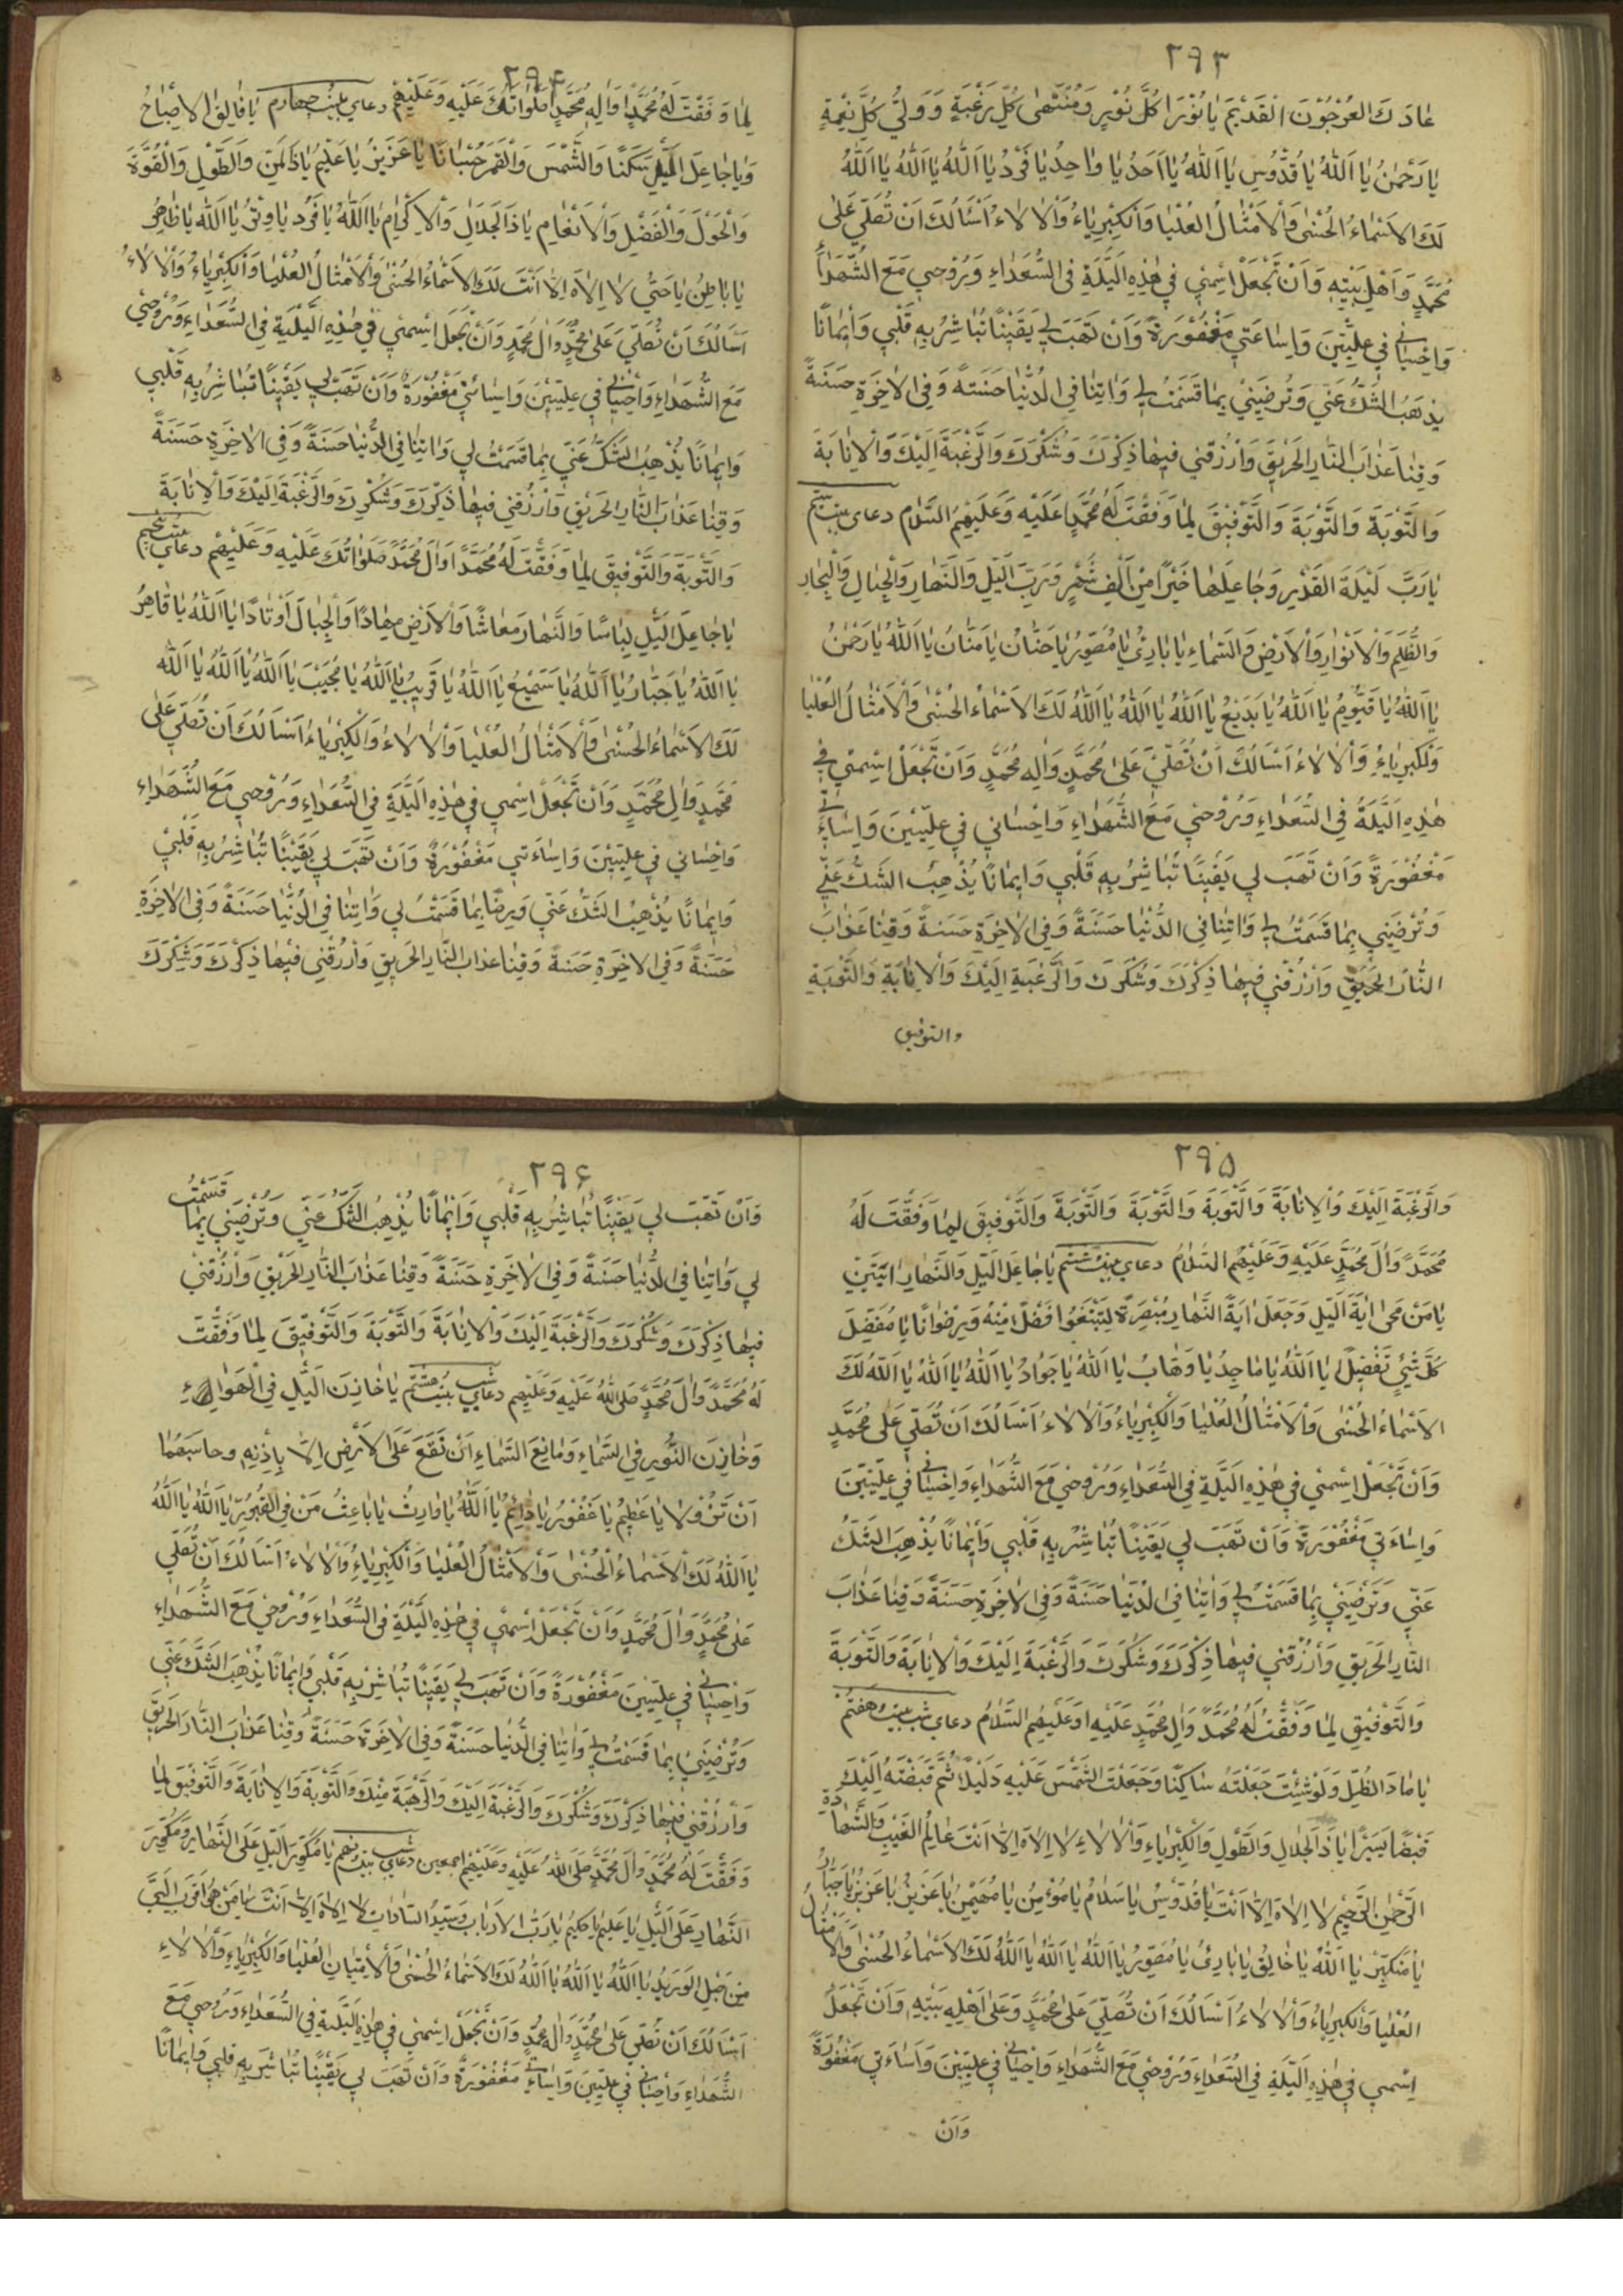 ۲۹۳
عادَ كَالعُرْجُوْنِ الْقَدِیْمِ یَا نُوْرَ كُلِّ نُوْرٍ وَمُنْتَهٰی كُلِّ رَغْبَةٍ وَوَلِیَّ كُلِّ نِعْمَةٍ
یَا رَحْمٰنُ یَا اَللّٰهُ یَا قُدُّوْسِ یَا اَللّٰهُ یَا اَحَدُ یَا واحِدُ یَا فَرْدُ یَا اَللّٰهُ یَا اَللّٰهُ یَا اَللّٰهُ
لَكَ الاَسْمَاءُ الحُسْنٰی وَالْاَمْثَالُ العُلْیَا وَالْكِبْرِیَاءُ وَالْاٰلَاءُ اَسْأَلُكَ اَنْ تُصَلِّیَ عَلٰی
مُحَمَّدٍ وَاَهْلِ بَیْتِهِ وَاَنْ تَجْعَلَ اسْمِیْ فِی هٰذِهِ الَیْلَةِ فِی السُّعَدَاءِ وَرُوْحِی مَعَ الشُّهَدَاءِ
وَاِحْسَانِی فِی عِلِّیِّیْنَ وَاِسَاءَتِی مَغْفُوْرَةً وَاَنْ تَهَبَ لِی یَقِیْنًا تُبَاشِرُ بِهِ قَلْبِی وَاِیْمَانًا
یُذْهِبُ الشَّكَّ عَنِّی وَتُرْضِیَنِیْ بِمَا قَسَمْتَ لِی وَاٰتِنَا فِی الدُّنْیَا حَسَنَةً وَفِی الاٰخِرَةِ حَسَنَةً
وَقِنَا عَذَابَ النَّارِ الحَرِیْقِ وَارْزُقْنِی فِیهَا ذِكْرَكَ وَشُكْرَكَ وَالرَّغْبَةَ اِلَیْكَ وَالْاِنَابَةَ
وَالتَّوْبَةَ وَالتَّوْبَةَ وَالتَّوْفِیْقَ لِمَا وَفَّقْتَ لَهُ مُحَمَّدًا عَلَیْهِ وَعَلَیْهِمُ السَّلَام دعای شب بیست سیّم
یَا رَبَّ لَیْلَةَ القَدْرِ وَجَاعِلَهَا خَیْرًا مِنْ اَلْفِ شَهْرٍ وَرَبَّ اللَّیْلِ وَالنَّهَارِ وَالْجِبَالِ وَالْبِحَارِ
وَالظُّلَمِ وَالْاَنْوَارِ وَالْاَرْضِ وَالسَّمَاءِ یَا بَارِئُ یَا مُصَوِّرُ یَا حَنَّانُ یَا مَنَّانُ یَا اَللّٰهُ یَا رَحْمٰنُ
یَا اَللّٰهُ یَا قَیُّوْمُ یَا اَللّٰهُ یَا بَدِیْعُ یَا اَللّٰهُ یَا اَللّٰهُ یَا اَللّٰهُ لَكَ الاَسْمَاءُ الحُسْنٰی وَالْاَمْثَالُ العُلْیَا
وَلْكِبْرِیَاءُ وَالْاٰلَاءُ اَسْأَلُكَ اَنْ تُصَلِّیَ عَلٰی مُحَمَّدٍ وَاٰلِهِ مُحَمَّدٍ وَاَنْ تَجْعَلَ اِسْمِیْ فِی
هٰذِهِ الَیْلَةُ فِی السُّعَدَاءِ وَرُوْحِیْ مَعَ الشُّهَدَاءِ وَاِحْسَانِی فِی عِلِّیِّیْنَ وَاِسَاءَتِی
مَغْفُوْرَةً وَاَنْ تَهَبَ لِی یَقِیْنًا تُبَاشِرُ بِهِ قَلْبِی وَاِیمَانًا یُذْهِبُ الشَّكَّ عَنِّی
وَتُرْضِیَنِی بِمَا قَسَمْتَ لِی وَاٰتِنَا فِی الدُّنْیَا حَسَنَةً وَفِی الاٰخِرَةِ حَسَنَةً وَقِنَا عَذَابَ
النَّارِ الحَرِیْقِ وَارْزُقْنِی فِیهَا ذِكْرَكَ وَشُكْرَكَ وَالرَّغْبَةِ اِلَیْكَ وَالْاِنَابَةِ وَالتَّوْبَةِ
والتوفیق
۲۹۴
لِمَا وَفَّقْتَ لَهُ مُحَمَّدًا وَاٰلِهِ مُحَمَّدٍ صَلَوَاتُكَ عَلَیْهِ وَعَلَیْهِمْ دعای شب بیست چهارم یَا فَالِقَ الاِصْبَاحِ
وَیَا جَاعِلَ اللَّیْلِ سَكَنًا وَالشَّمْسَ وَالْقَمَرَ حُسْبَانًا یَا عَزِیْزُ یَا عَلِیْمُ یَا ذَالمَنِّ وَالطَّوْلِ وَالْقُوَّةِ
وَالْحَوْلَ وَالْفَضْلِ وَالْاَنْعَامِ یَا ذَالجَلَالِ وَالْاِكْرَامِ یَا اَللّٰهُ یَا فَرْدُ یَا وِتْرُ یَا اَللّٰه یَا ظَاهِرُ
یَا بَاطِنُ یَا حَیُّ لَا اِلٰهَ اِلَّا اَنْتَ لَكَ الاَسْمَاءُ الحُسْنٰی وَالْاَمْثَالُ العُلْیَا وَالْكِبْرِیَاءُ وَالْاٰلَاءُ
اَسْأَلُكَ اَنْ تُصَلِّیَ عَلٰی مُحَمَّدٍ وَاٰلِ مُحَمَّدٍ وَاَنْ تَجْعَلَ اِسْمِیْ فِی هٰذِهِ الَّیْلَةِ فِی السُّعَدَاءِ وَرُوْحِیْ
مَعَ الشُّهَدَاءِ وَاِحْسَانِی فِی عِلِّیِّیْنَ وَاِسَائَتِیْ مَغْفُوْرَةً وَاَنْ تَهَبَ لِی یَقِیْنًا تُبَاشِرُ بِهِ قَلْبِی
وَاِیمَانًا یُذْهِبُ الشَّكَّ عَنِّی بِمَا قَسَمْتَ لِی وَاٰتِنَا فِی الدُّنْیَا حَسَنَةً وَفِی الاٰخِرَةِ حَسَنَةً
وَقِنَا عَذَابَ النَّارِ الحَرِیْقِ وَارْزُقْنِی فِیهَا ذِكْرَكَ وَشُكْرِكَ وَالرَّغْبَةَ اِلَیْكَ وَالْاِنَابَةَ
وَالتَّوْبَةَ وَالتَّوْفِیقَ لِمَا وَفَّقْتَ لَهُ مُحَمَّدًا وَاٰلَ مُحَمَّدٍ صَلَوَاتُكَ عَلَیْهِ وَعَلَیْهِمْ دعای شب بیست پنجم
یَا جَاعِلَ الَّیْلِ لِبَاسًا وَالنَّهَارَ مَعَاشًا وَالْاَرْضَ مِهَادًا وَالْجِبَالَ اَوْتَادًا یَا اَللّٰهُ یَا قَاهِرُ
یَا اَللّٰهُ یَا جَبَّارُ یَا اَللّٰهُ یَا سَمِیْعُ یَا اَللّٰهُ یَا قَرِیبُ یَا اَللّٰهُ یَا مُجِیْبَ یَا اَللّٰهُ یَا اَللّٰهُ یَا اَللّٰه
لَكَ الاَسْمَاءُ الحُسْنٰی وَالْاَمْثَالُ العُلْیَا وَالْاٰلَاءُ وَالْكِبْرِیَاءُ اَسْأَلُكَ اَنْ تُصَلِّیَ عَلٰی
مُحَمَّدٍ وَاٰلِ مُحَمَّدٍ وَاَنْ تَجْعَلَ اسْمِی فِی هٰذِهِ الَیْلَةِ فِی السُّعَدَاءِ وَرُوْحِی مَعَ الشُّهَدَاءِ
وَاِحْسَانِی فِی عِلِّیِّیْنَ وَاِسَاءَتِی مَغْفُوْرَةً وَاَنْ تَهَبَ لِی یَقِیْنًا تُبَاشِرُ بِهِ قَلْبِیْ
وَاِیمَانًا یُذْهِبُ الشَّكَّ عَنِّی وَیَرِضًا بِمَا قَسَمْتَ لِی وَاٰتِنَا فِی الدُّنْیَا حَسَنَةً وَفِی الاٰخِرَةِ
حَسَنَةً وَفِی الاٰخِرَةِ حَسَنَةً وَقِنَا عَذابَ النَّارِ الحَرِیقِ وَارْزُقْنِی فِیْهَا ذِكْرَكَ وَشُكْرَكَ
۲۹۵
وَالرَّغْبَةَ اِلَیْكَ وَالْاِنَابَةَ وَالتَّوْبَةَ وَالتَّوْبَةَ وَالتَّوْبَةَ وَالتَّوْفِیقَ لِمَا وَفَّقْتَ لَهُ
مُحَمَّدً وَاٰلَ مُحَمَّدٍ عَلَیْهِ وَعَلَیْهِمُ السَّلَامُ دعای شب بیست ششم یَا جَاعِلَ الَّیْلِ وَالنَّهَارِ اٰیَتَیْنِ
یَا مَنْ مَحٰی اٰیَةَ الَّیْلِ وَجَعَلَ اٰیَةَ النَّهَارِ مُبْصِرَةً لِتَبْتَغُوْا فَضْلًا مِنْهُ وَرِضْوَانًا یَا مُفَصِّلَ
كُلَّ شَیْءٍ تَفْصِیْلًا یَا اَللّٰهُ یَا مَاجِدُ یَا وَهَّابُ یَا اَللّٰهُ یَا جَوَادُ یَا اَللّٰهُ یَا اَللّٰهُ یَا اَللّٰهُ لَكَ
الاَسْمَاءُ الحُسْنٰی وَالْاَمْثَالُ العُلْیَا وَالْكِبْرِیَاءُ وَالْاٰلَاءُ اَسْأَلُكَ اَنْ تُصَلِّیَ عَلٰی مُحَمَّدٍ
وَاَنْ تَجْعَلَ اِسْمِیْ فِی هٰذِهِ الَیْلَةِ فِی السُّعَدَاءِ وَرُوْحِیْ مَعَ الشُّهَدَاءِ وَاِحْسَانِی فِی عِلِّیِّیْنَ
وَاِسَاءَتِی مَغْفُوْرَةً وَاَنْ تَهَبَ لِی یَقِیْنًا تُبَاشِرُ بِهِ قَلْبِی وَاِیْمَانًا یُذْهِبَ الشَّكَّ
عَنِّی وَتُرْضِیَنِیْ بِمَا قَسَمْتَ لِی وَاٰتِنَا فِی الدُّنْیَا حَسَنَةً وَفِی الاٰخِرَةِ حَسَنَةً وَقِنَا عَذَابَ
النَّارِ الحَرِیقِ وَارْزُقْنِی فِیهَا ذِكْرَكَ وَشُكْرَكَ وَالرَّغْبَةَ اِلَیْكَ وَالْاِنَابَةَ وَالتَّوْبَةَ
وَالتَّوْفِیْقِ لِمَا وَفَّقْتَ لَهُ مُحَمَّدً وَاٰلِ مُحَمَّدٍ عَلَیْهِ وَعَلَیْهِمُ السَّلَامُ دعای شب بیست هفتم
یَا مَادَّ الظِّلِّ وَلَوْ شِئْتَ جَعَلْتَهُ سَاكِنًا وَجَعَلْتَ الشَّمْسَ عَلَیْهِ دَلِیْلًا ثُمَّ قَبَضْتَهُ اِلَیْكَ
قَبْضًا یَسِیْرًا یَا ذَالجَلَالِ وَالطَّوْلِ وَالْكِبْرِیَاءِ وَالْاٰلَاءِ لَا اِلٰهَ اِلَّا اَنْتَ عَالِمُ الغَیْبِ وَالشَّهَادَةِ
الرَّحْمٰنِ الرَّحِیْمِ لَا اِلٰهَ اِلَّا اَنْتَ یَا قُدُّوْسُ یَا سَلَامُ یَا مُؤْمِنُ یَا مُهَیْمِنُ یَا عَزِیْزُ یَا عَزِیْزُ یَا جَبَّارُ
یَا مُتَكَبِّرُ یَا اَللّٰهُ یَا خَالِقُ یَا بَارِئُ یَا مُصَوِّرُ یَا اَللّٰهُ یَا اَللّٰهُ یَا اَللّٰهُ لَكَ الاَسْمَاءُ الحُسْنٰی وَالْاَمْثَالُ
العُلْیَا وَالْكِبْرِیَاءُ وَالْاٰلَاءُ اَسْأَلُكَ اَنْ تُصَلِّیَ عَلٰی مُحَمَّدٍ وَعَلٰی اَهْلِهِ بَیْتِهِ وَاَنْ تَجْعَلَ
اِسْمِی فِی هٰذِهِ الَیْلَةِ فِی السُّعَدَاءِ وَرُوْحِیْ مَعَ الشُّهَدَاءِ وَاِحْسَانِی فِی عِلِّیِّیْنَ وَاِسَاءَتِی مَغْفُوْرَةً
وَاَنْ
۲۹۶
وَاَنْ تَهَبَ لِی یَقِیْنًا تُبَاشِرُ بِهِ قَلْبِی وَاِیْمَانًا یُذْهِبُ الشَّكَّ عَنِّی وَتُرْضِیَنِی بِمَا قَسَمْتَ
لِی وَاٰتِنَا فِی الدُّنْیَا حَسَنَةً وَفِی الاٰخِرَةِ حَسَنَةً وَقِنَا عَذَابَ النَّارِ الحَرِیْقِ وَارْزُقْنِیْ
فِیهَا ذِكْرَكَ وَشُكْرَكَ وَالرَّغْبَةَ اِلَیْكَ وَالْاِنَابَةَ وَالتَّوْبَةَ وَالتَّوْفِیْقَ لِمَا وَفَّقْتَ
لَهُ مُحَمَّدً وَاٰلَ مُحَمَّدٍ صَلَی اللّٰهُ عَلَیْهِ وَعَلَیْهِم دعای شب بیست هشتم یَا خَازِنَ الَّیْلِ فِی الْهَوَاءِ
وَخَازِنَ النُّوْرِ فِی السَّمَاءِ وَمَانِعَ السَّمَاءِ اَنْ تَقَعَ عَلَی الْاَرْضِ اِلَّا بِاِذْنِهِ وحابسَهُمَا
اَنْ تَزُوْلَا یَا عَظِیْمُ یَا غَفُوْرُ یَا دَائِمُ یَا اَللّٰهُ یَا وَارِثُ یَا بَاعِثُ مَنْ فِی القُبُوْرِ یَا اَللّٰهُ یَا اَللّٰهُ
یَا اَللّٰهُ لَكَ الْاَسْمَاءُ الْحُسْنٰی وَالْاَمْثَالُ العُلْیَا وَالْكِبْرِیَاءُ وَالْاٰلَاءُ اَسْأَلُكَ اَنْ تُصَلِّیَ
عَلٰی مُحَمَّدٍ وَاٰلَ مُحَمَّدٍ وَاَنْ تَجْعَلَ اِسْمِیْ فِی هٰذِهِ الَیْلَةِ فِی السُّعَدَاءِ وَرُوْحِیْ مَعَ الشُّهَدَاءِ
وَاِحْسَانِی فِی عِلِّیِّیْنَ مَغْفُوْرَةً وَاَنْ تَهَبَ لِی یَقِیْنًا تُبَاشِرُ بِهِ قَلْبِی وَاِیْمَانًا یُذْهِبَ الشَّكَّ عَنِّی
وَتُرْضِیَنِیْ بِمَا قَسَمْتَ لِی وَاٰتِنَا فِی الدُّنْیَا حَسَنَةً وَفِی الاٰخِرَةِ حَسَنَةً وَقِنَا عَذَابَ النَّارِ الحَرِیْقِ
وَارْزُقْنِی فِیْهَا ذِكْرَكَ وَشُكْرَكَ وَالرَّغْبَةَ اِلَیْكَ وَالرَّهْبَةَ مِنْكَ وَالتَّوْبَةَ وَالْاِنَابَةَ وَالتَّوْفِیْقَ لِمَا
وَفَّقْتَ لَهُ مُحَمَّدٍ وَاٰلَ مُحَمَّدٍ صَلَی اللّٰهُ عَلَیْهِ وَعَلَیْهِم اجمعین دعای شب بیست نهم یَا مُكَوِّرَ الَّیْلِ عَلَی النَّهَارِ وَمُكَوِّرَ
النَّهَارِ عَلَی الَّیْلِ یَا عَلِیْمُ یَا حَكِیْمُ یَا رَبَّ الاَرْبَابِ وَسَیِّدَ السَّادَاتِ لَا اِلٰهَ اِلَّا اَنْتَ یَا مَنْ هُوَ اَقْرَبُ اِلَیَّ
مِنْ حَبْلِ الوَرِیْدِ یَا اَللّٰهُ یَا اَللّٰهُ یَا اَللّٰهُ لَكَ الاَسْمَاءُ الحُسْنٰی وَالْاَمْثَالُ العُلْیَا وَالْكِبْرِیَاءِ وَالْاٰلَاءِ
اَسْأَلُكَ اَنْ تُصَلِّیَ عَلٰی مُحَمَّدٍ وَاٰلِ مُحَمَّدٍ وَاَنْ تَجْعَلَ اِسْمِیْ فِی هٰذِهِ الَیْلَةِ فِی السُّعَدَاءِ وَرُوْحِیْ مَعَ
الشُّهَدَاءِ وَاِحْسَانِی فِی عِلِّیِّیْنَ وَاِسَاءَتِی مَغْفُوْرَةً وَاَنْ تَهَبَ لِی یَقِیْنًا تُبَاشِرَ بِهِ قَلْبِی وَاِیْمَانًا